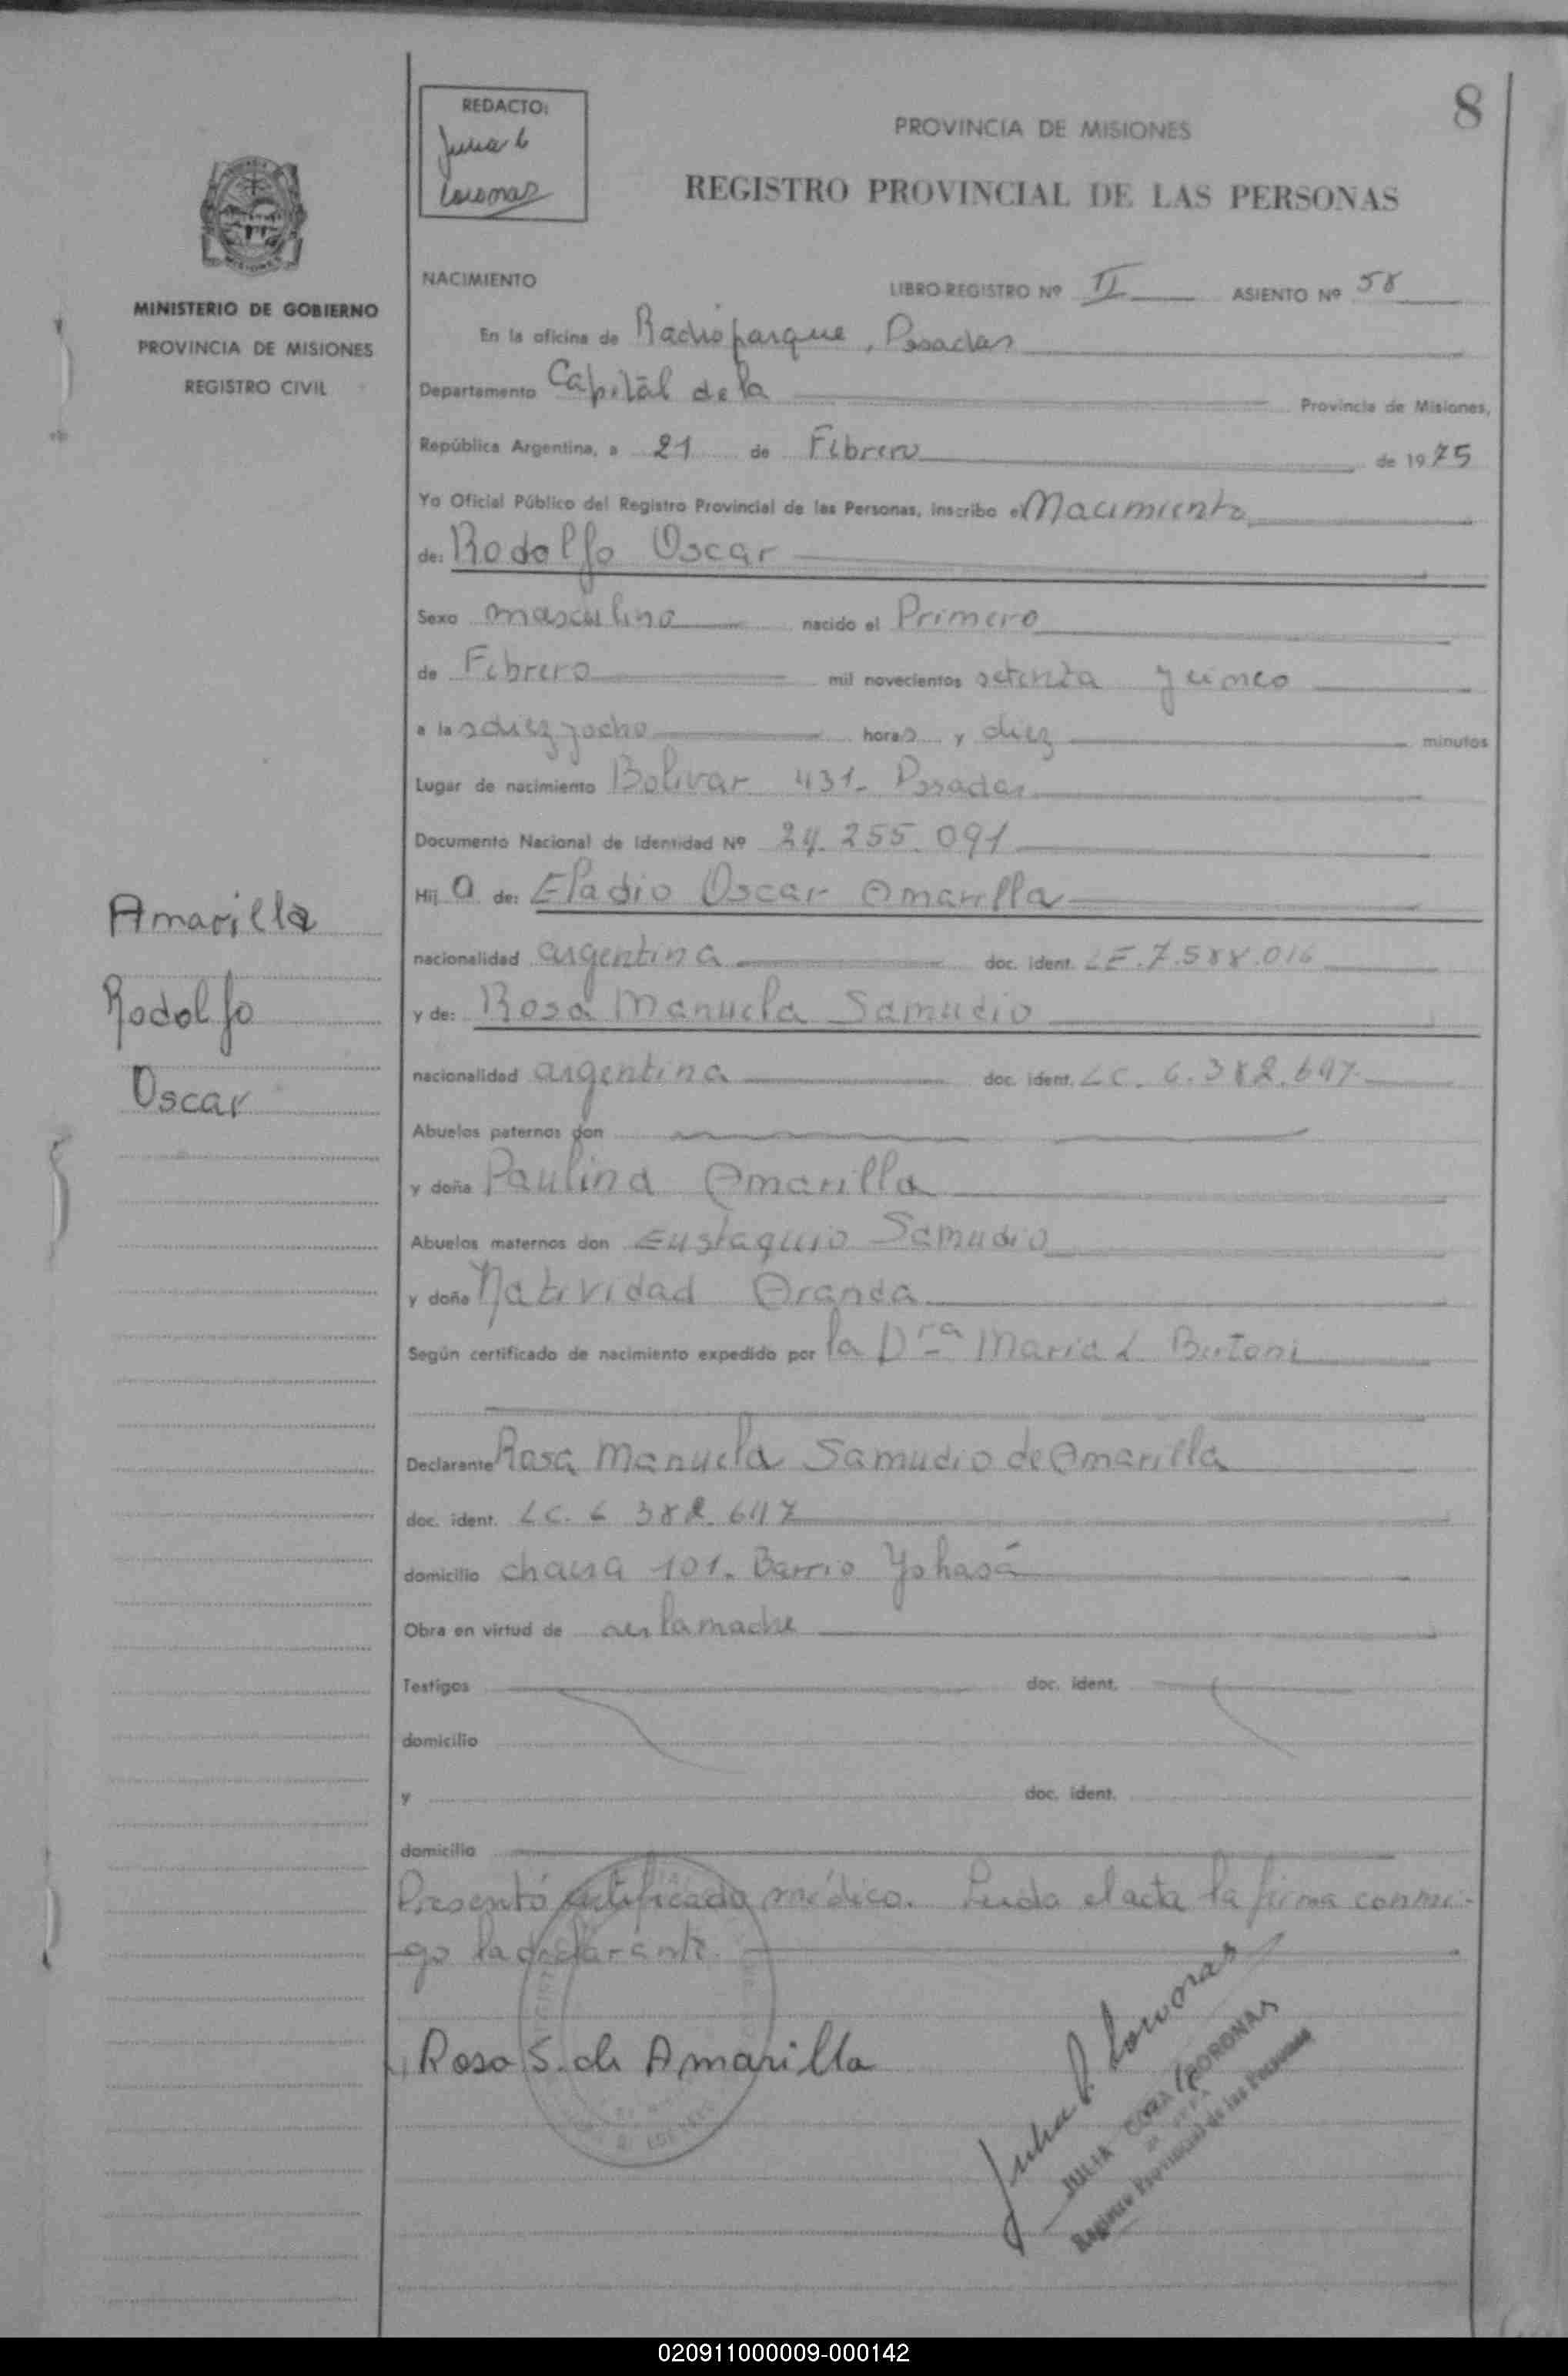 8
REDACTO:
Julia C
Coronas
PROVINCIA DE MISIONES
REGISTRO PROVINCIAL DE LAS PERSONAS
MINISTERIO DE GOBIERNO
PROVINCIA DE MISIONES
REGISTRO CIVIL
NACIMIENTO LIBRO-REGISTRO Nº II ASIENTO Nº 58
En la oficina de Radioparque, Posadas
Departamento Capital de la Provincia de Misiones,
República Argentina, a 21 de Febrero de 1975
Yo Oficial Público del Registro Provincial de las Personas, inscribo el Nacimiento
de: Rodolfo Oscar
Sexo masculino nacido el Primero
de Febrero mil novecientos setenta y cinco
a las diez y ocho horas y diez minutos
Lugar de nacimiento Bolivar 431- Posadas
Documento Nacional de Identidad Nº 24.255.091
Hij o de: Eladio Oscar Amarilla
nacionalidad argentina doc. ident. LE.7.588.016
y de: Rosa Manuela Samudio
nacionalidad argentina doc. ident. LC. 6.382.647
Abuelos paternos don
y doña Paulina Amarilla
Abuelos maternos don Eustaquio Samudio
y doña Natividad Aranda
Según certificado de nacimiento expedido por la Dra Maria L Bertoni
Declarante Rosa Manuela Samudio de Amarilla
doc. ident. LC. 6 382.647
domicilio chacra 101- Barrio Yohasá
Obra en virtud de ser la madre
Testigos doc. ident.
domicilio
y doc. ident.
domicilio
Presentó certificado médico. Leida el acta la firma conmi-
go la declarante.
Rosa S. de Amarilla
Julia C. Coronas
JULIA CORONAS
Registro Provincial de las Personas
Amarilla
Rodolfo
Oscar
020911000009-000142